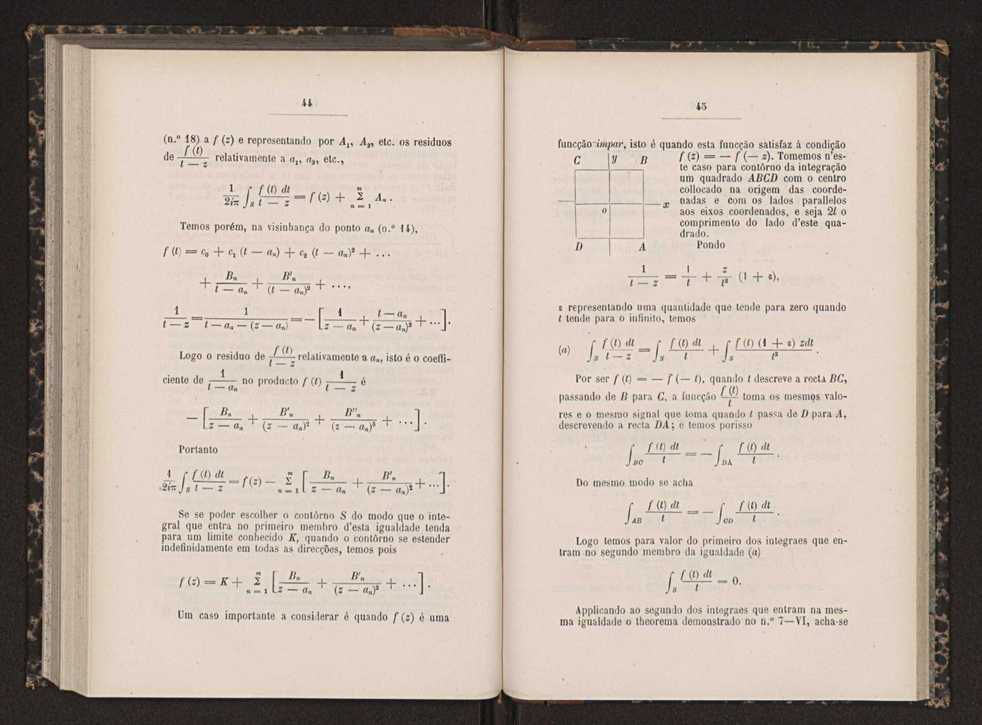 44
(n.º 18) a f (z) e representando por A₁, A₂, etc. os residuos
de f (t) / t — z relativamente a a₁, a₂, etc.,
1/2iπ ∫_S f (t) dt / t — z = f (z) + Σ_{n = 1}^{m} Aₙ .
Temos porém, na visinhança do ponto aₙ (n.º 14),
f (t) = c₀ + c₁ (t — aₙ) + c₂ (t — aₙ)² + . . .
+ Bₙ / t — aₙ + B'ₙ / (t — aₙ)² + . . .,
1 / t — z = 1 / t — aₙ — (z — aₙ) = — [ 1 / z — aₙ + t — aₙ / (z — aₙ)² + ... ] .
Logo o residuo de f (t) / t — z relativamente a aₙ, isto é o coeffi-
ciente de 1 / t — aₙ no producto f (t) 1 / t — z é
— [ Bₙ / z — aₙ + B'ₙ / (z — aₙ)² + B''ₙ / (z — aₙ)³ + . . . ] .
Portanto
1/2iπ ∫_S f (t) dt / t — z = f (z) — Σ_{n = 1}^{m} [ Bₙ / z — aₙ + B'ₙ / (z — aₙ)² + ... ] .
Se se poder escolher o contôrno S do modo que o inte-
gral que entra no primeiro membro d'esta igualdade tenda
para um limite conhecido K, quando o contôrno se estender
indefinidamente em todas as direcções, temos pois
f (z) = K + Σ_{n = 1}^{∞} [ Bₙ / z — aₙ + B'ₙ / (z — aₙ)² + . . . ] .
Um caso importante a considerar é quando f (z) é uma
45
funcção impar, isto é quando esta funcção satisfaz á condição
C y B
x
o
D A
f (z) = — f (— z). Tomemos n'es-
te caso para contôrno da integração
um quadrado ABCD com o centro
collocado na origem das coorde-
nadas e com os lados parallelos
aos eixos coordenados, e seja 2l o
comprimento do lado d'este qua-
drado.
Pondo
1 / t — z = 1 / t + z / t² (1 + ε),
ε representando uma quantidade que tende para zero quando
t tende para o infinito, temos
(a) ∫_S f (t) dt / t — z = ∫_S f (t) dt / t + ∫_S f (t) (1 + ε) zdt / t² .
Por ser f (t) = — f (— t), quando t descreve a recta BC,
passando de B para C, a funcção f (t) / t toma os mesmos valo-
res e o mesmo signal que toma quando t passa de D para A,
descrevendo a recta DA ; e temos porisso
∫_BC f (t) dt / t = — ∫_DA f (t) dt / t .
Do mesmo modo se acha
∫_AB f (t) dt / t = — ∫_CD f (t) dt / t .
Logo temos para valor do primeiro dos integraes que en-
tram no segundo membro da igualdade (a)
∫_S f (t) dt / t = 0.
Applicando ao segundo dos integraes que entram na mes-
ma igualdade o theorema demonstrado no n.º 7—VI, acha-se